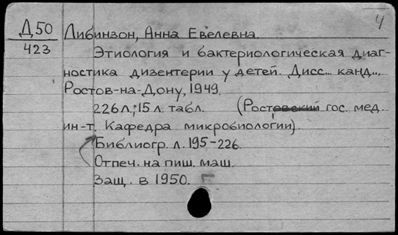 4
Д50 Либинзон, Анна Евелевна.
423
Этиология и бактериологическая диаг-
ностика дизентерии у детей. Дисс... канд...,
Ростов-на-Дону, 1949.
226 л.; 15 л. табл. (Ростовский гос. мед.
ин-т. Кафедра микробиологии).
Библиогр. л. 195-226.
Отпеч. на пиш. маш.
Защ. в 1950.